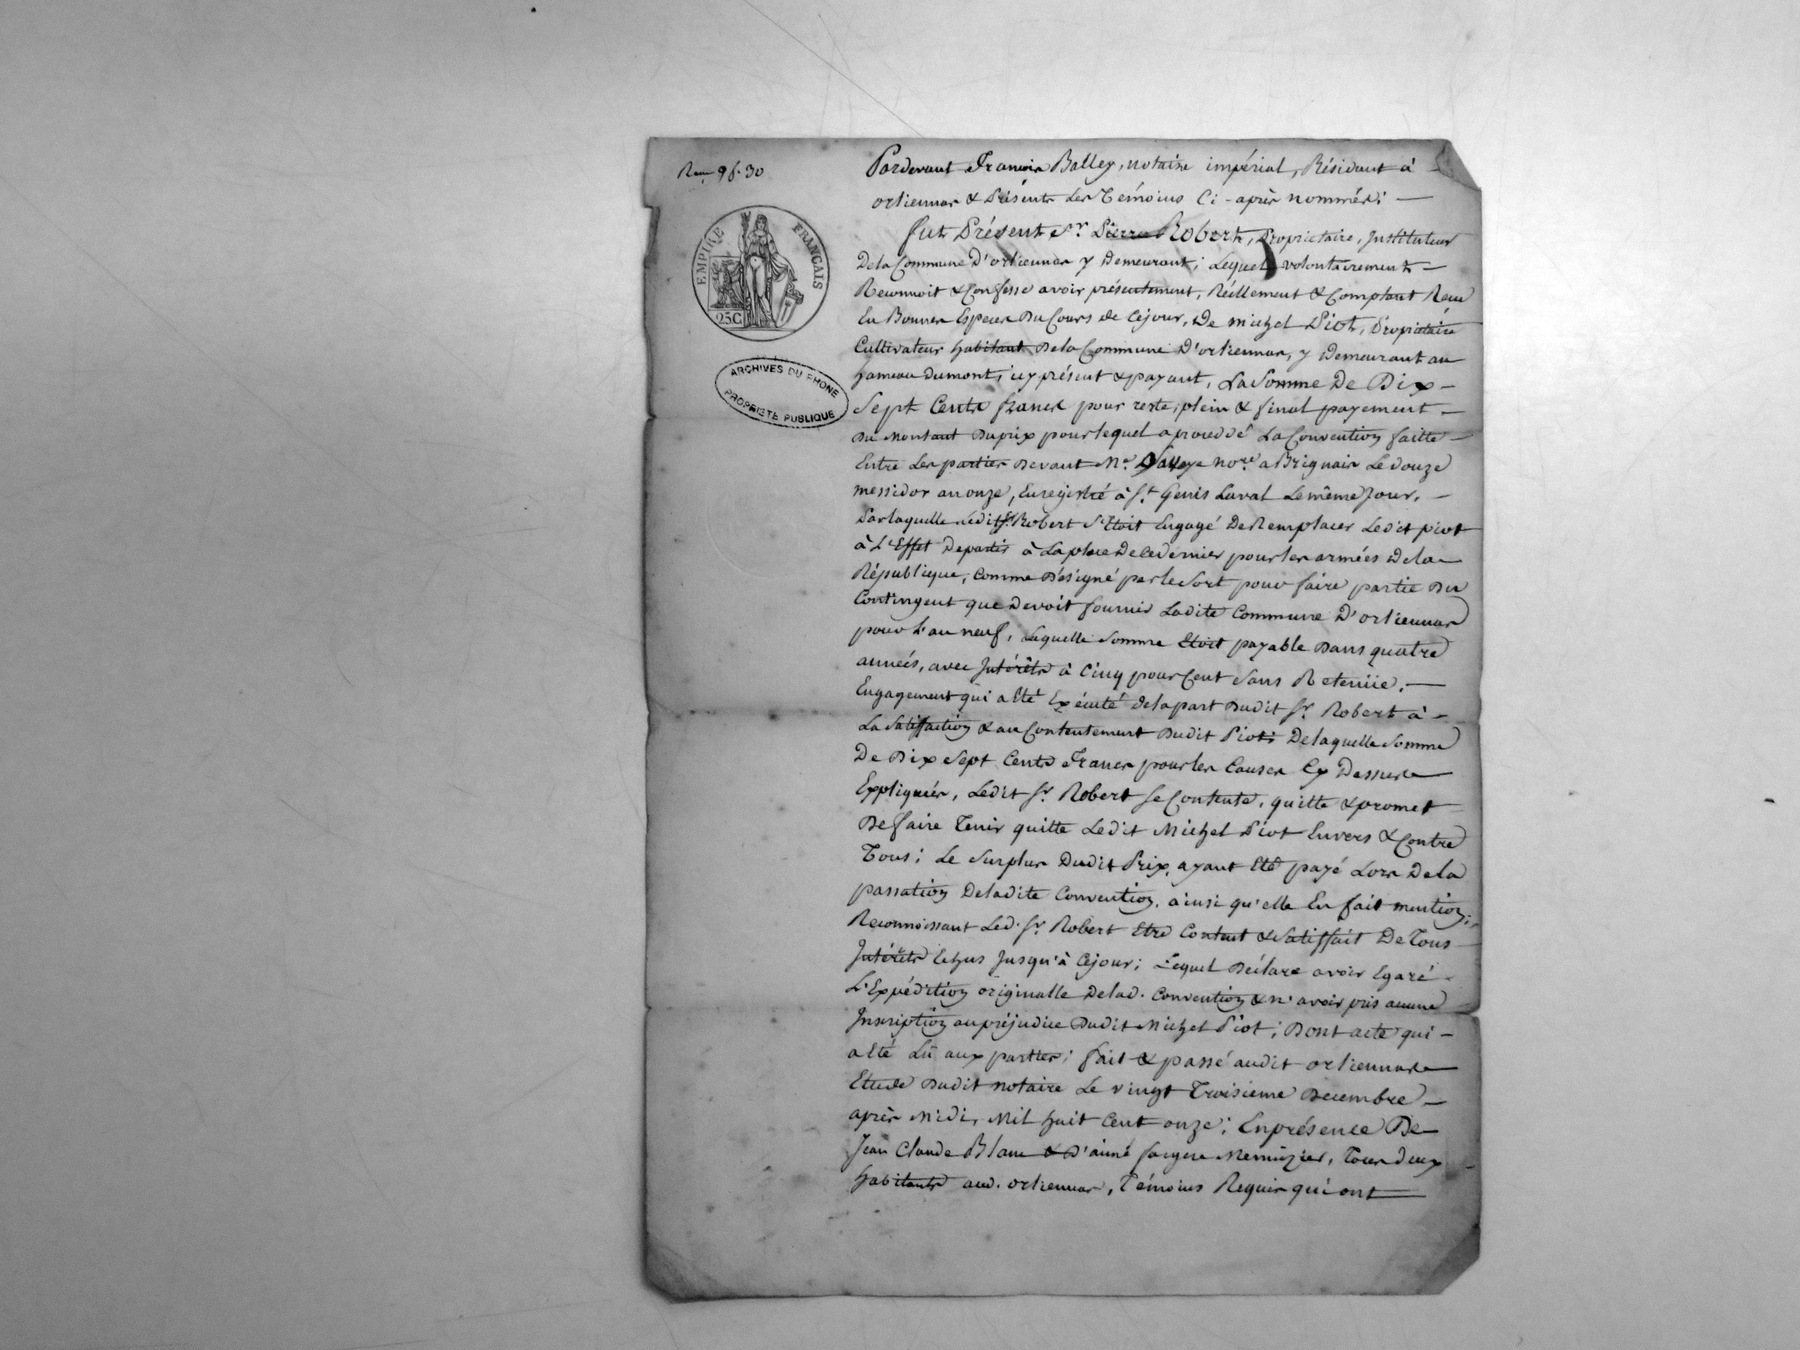 9 f. 30
EMPIRE FRANÇAIS
25C
ARCHIVES DU RHONE
PROPRIETE PUBLIQUE
Pardevant François Balley, notaire impérial, Résidant à
orliennas & Présents Les Témoins Ci-après nommés;
fut Présent Sr. Pierre Robert, Propriétaire, Instituteur
De la Commune D'orliennas y Demeurant; Lequel volontairement
Reconnoit & Confesse avoir présentement, Réellement & Comptant Reçu
En Bonnes Especes Du Cours de Cejour, De michel Piot, Propriétaire
Cultivateur habitant De la Commune D'orliennas, y Demeurant au
hameau Dumont, icy présent & payant, La Somme De Dix
Sept Cents francs pour reste, plein & final payement
Du Montant Du prix pour lequel a procedé La Convention faitte
Entre Les parties Devant Me. no.re a Brignais Le douze
messidor an onze, Enregistré à St. Genis Laval Le même Jour,
Par laquelle Ledit Sr. Robert S'Etoit Engagé De Remplacer Ledit piot
à L'Effet De partir à La place De ce dernier pour les armées De la
République, Comme Désigné par le Sort pour faire partie Du
Contingent que Devoit fournir Ladite Commune D'orliennas
pour L'an neuf, Laquelle Somme Etoit payable Dans quatre
années, avec Intérêts à Cinq pour Cent Sans Retenüe,
Engagement qui a Eté Exécuté de la part Dudit Sr. Robert à
La Satisfaction & au Contentement Dudit Piot; De laquelle Somme
De Dix Sept Cents Francs pour les Causes Cy Dessus
Expliquées, Ledit Sr. Robert Se Contente, quitte & promet
De faire Tenir quitte Ledit Michel Piot Envers & Contre
Tous; Le Surplus Dudit Prix, ayant Eté payé Lors De la
passation De ladite Convention, ainsi qu'elle En fait mention;
Reconnoissant Led. Sr. Robert Etre Content & Satisfait De Tous
Intérêts Echus Jusqu'à Cejour; Lequel Déclare avoir Egaré
L'Expédition originalle De lad. Convention & n'avoir pris aucune
Inscription au préjudice Dudit Michel Piot; Dont acte qui
a Eté Lû aux parties; fait & passé audit orliennas
Etude Dudit notaire Le vingt Troisieme Decembre
après Midi, Mil huit Cent onze; En présence De
Jean Claude Blanc & D'aimé Menuizier, Tous deux
habitants aud. orliennas, Témoins Requis qui ont